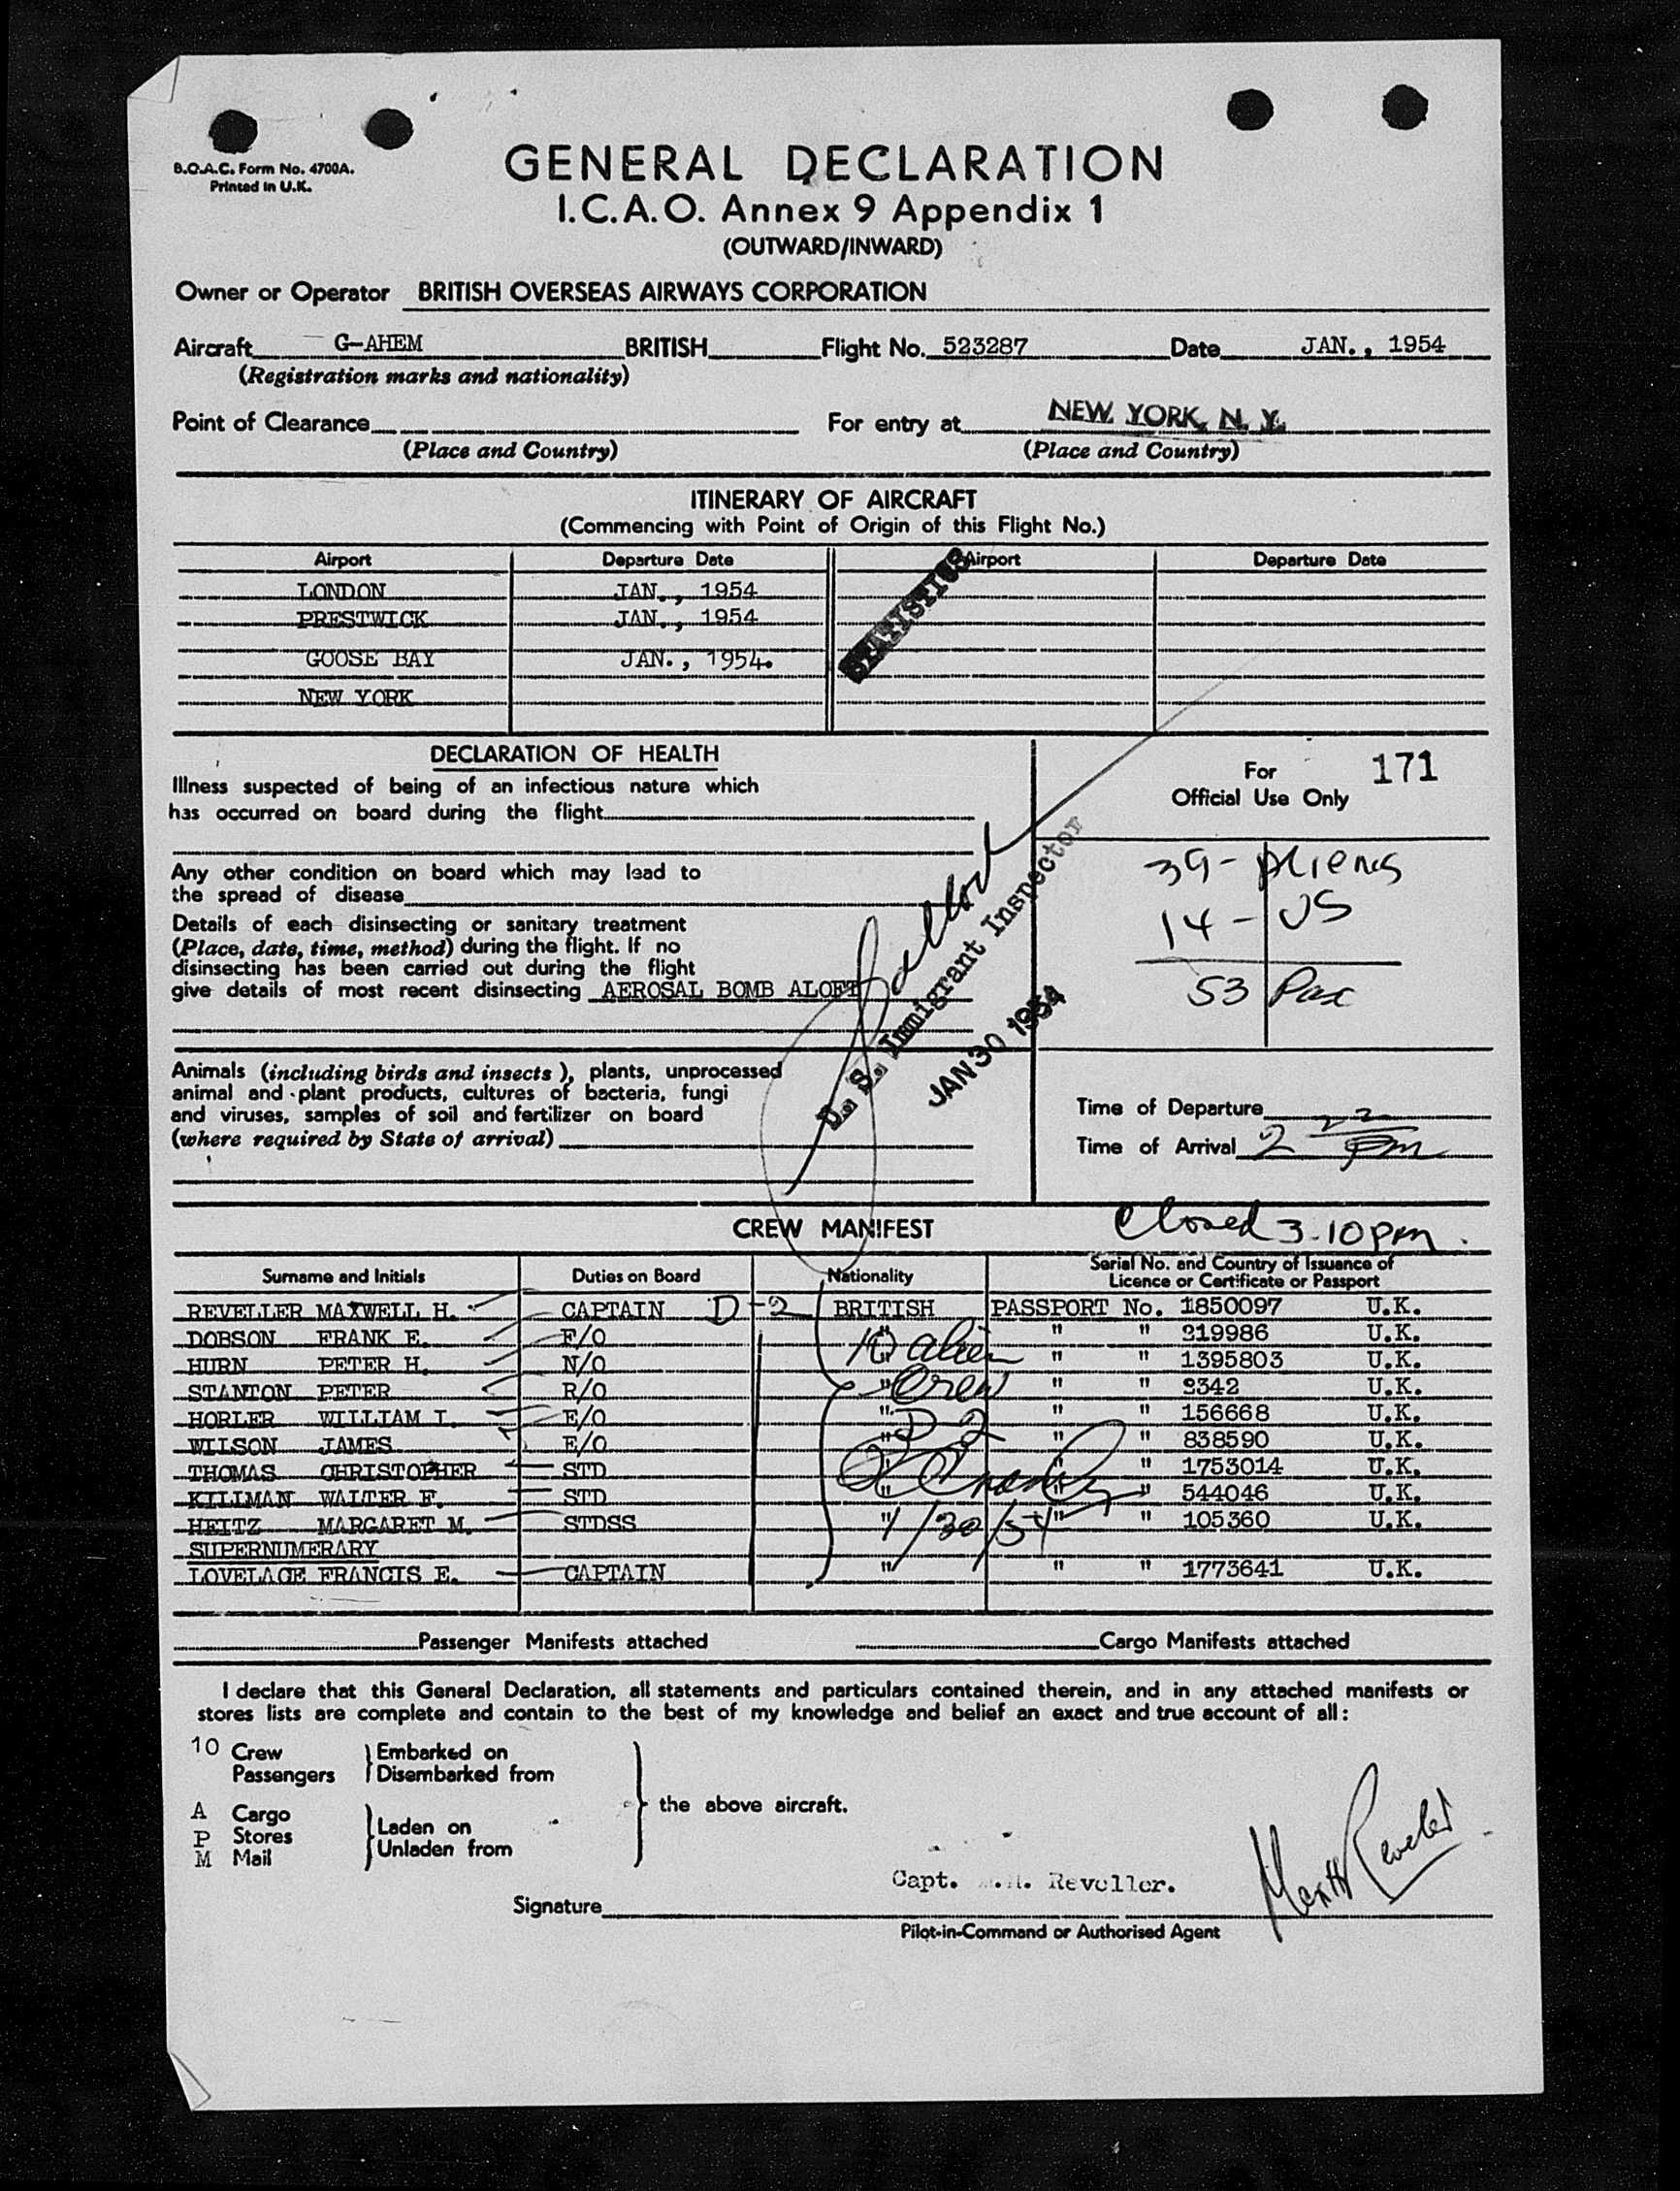 B.O.A.C. Form No. 4700A.
Printed in U.K.
GENERAL DECLARATION
I.C.A.O. Annex 9 Appendix 1
(OUTWARD/INWARD)
Owner or Operator BRITISH OVERSEAS AIRWAYS CORPORATION
Aircraft G-AHEM BRITISH Flight No. 523287 Date JAN., 1954
(Registration marks and nationality)
Point of Clearance For entry at NEW YORK, N. Y.
(Place and Country) (Place and Country)
ITINERARY OF AIRCRAFT
(Commencing with Point of Origin of this Flight No.)
Airport Departure Date Airport Departure Date
LONDON JAN., 1954
PRESTWICK JAN., 1954
STATISTICS
GOOSE BAY JAN., 1954.
NEW YORK
DECLARATION OF HEALTH
Illness suspected of being of an infectious nature which
has occurred on board during the flight
Any other condition on board which may lead to
the spread of disease
Details of each disinsecting or sanitary treatment
(Place, date, time, method) during the flight. If no
disinsecting has been carried out during the flight
give details of most recent disinsecting AEROSAL BOMB ALOFT
Animals (including birds and insects), plants, unprocessed
animal and plant products, cultures of bacteria, fungi
and viruses, samples of soil and fertilizer on board
(where required by State of arrival)
U. S. Immigrant Inspector
JAN 30 1954
For 171
Official Use Only
39 - Aliens
14 - US
53 Pax
Time of Departure
Time of Arrival 2 22 pm
Closed 3.10 pm.
CREW MANIFEST
Surname and Initials Duties on Board Nationality Serial No. and Country of Issuance of
Licence or Certificate or Passport
REVELLER MAXWELL H. CAPTAIN D-2 BRITISH PASSPORT No. 1850097 U.K.
DOBSON FRANK E. F/O " " " 319986 U.K.
HURN PETER H. N/O " " " 1395803 U.K.
STANTON PETER R/O " " " 2342 U.K.
HORLER WILLIAM I. E/O " " " 156668 U.K.
WILSON JAMES E/O " " " 838590 U.K.
THOMAS CHRISTOPHER STD " " " 1753014 U.K.
KILLMAN WALTER F. STD " " " 544046 U.K.
HEITZ MARGARET M. STDSS " " " 105360 U.K.
SUPERNUMERARY
LOVELACE FRANCIS E. CAPTAIN " " " 1773641 U.K.
10 alien
Crew
D 2
1/30/54
Passenger Manifests attached Cargo Manifests attached
I declare that this General Declaration, all statements and particulars contained therein, and in any attached manifests or
stores lists are complete and contain to the best of my knowledge and belief an exact and true account of all:
10 Crew Embarked on
Passengers Disembarked from
the above aircraft.
A Cargo Laden on
P Stores Unladen from
M Mail
Capt. Reveller.
Max H Reveller
Signature
Pilot-in-Command or Authorised Agent